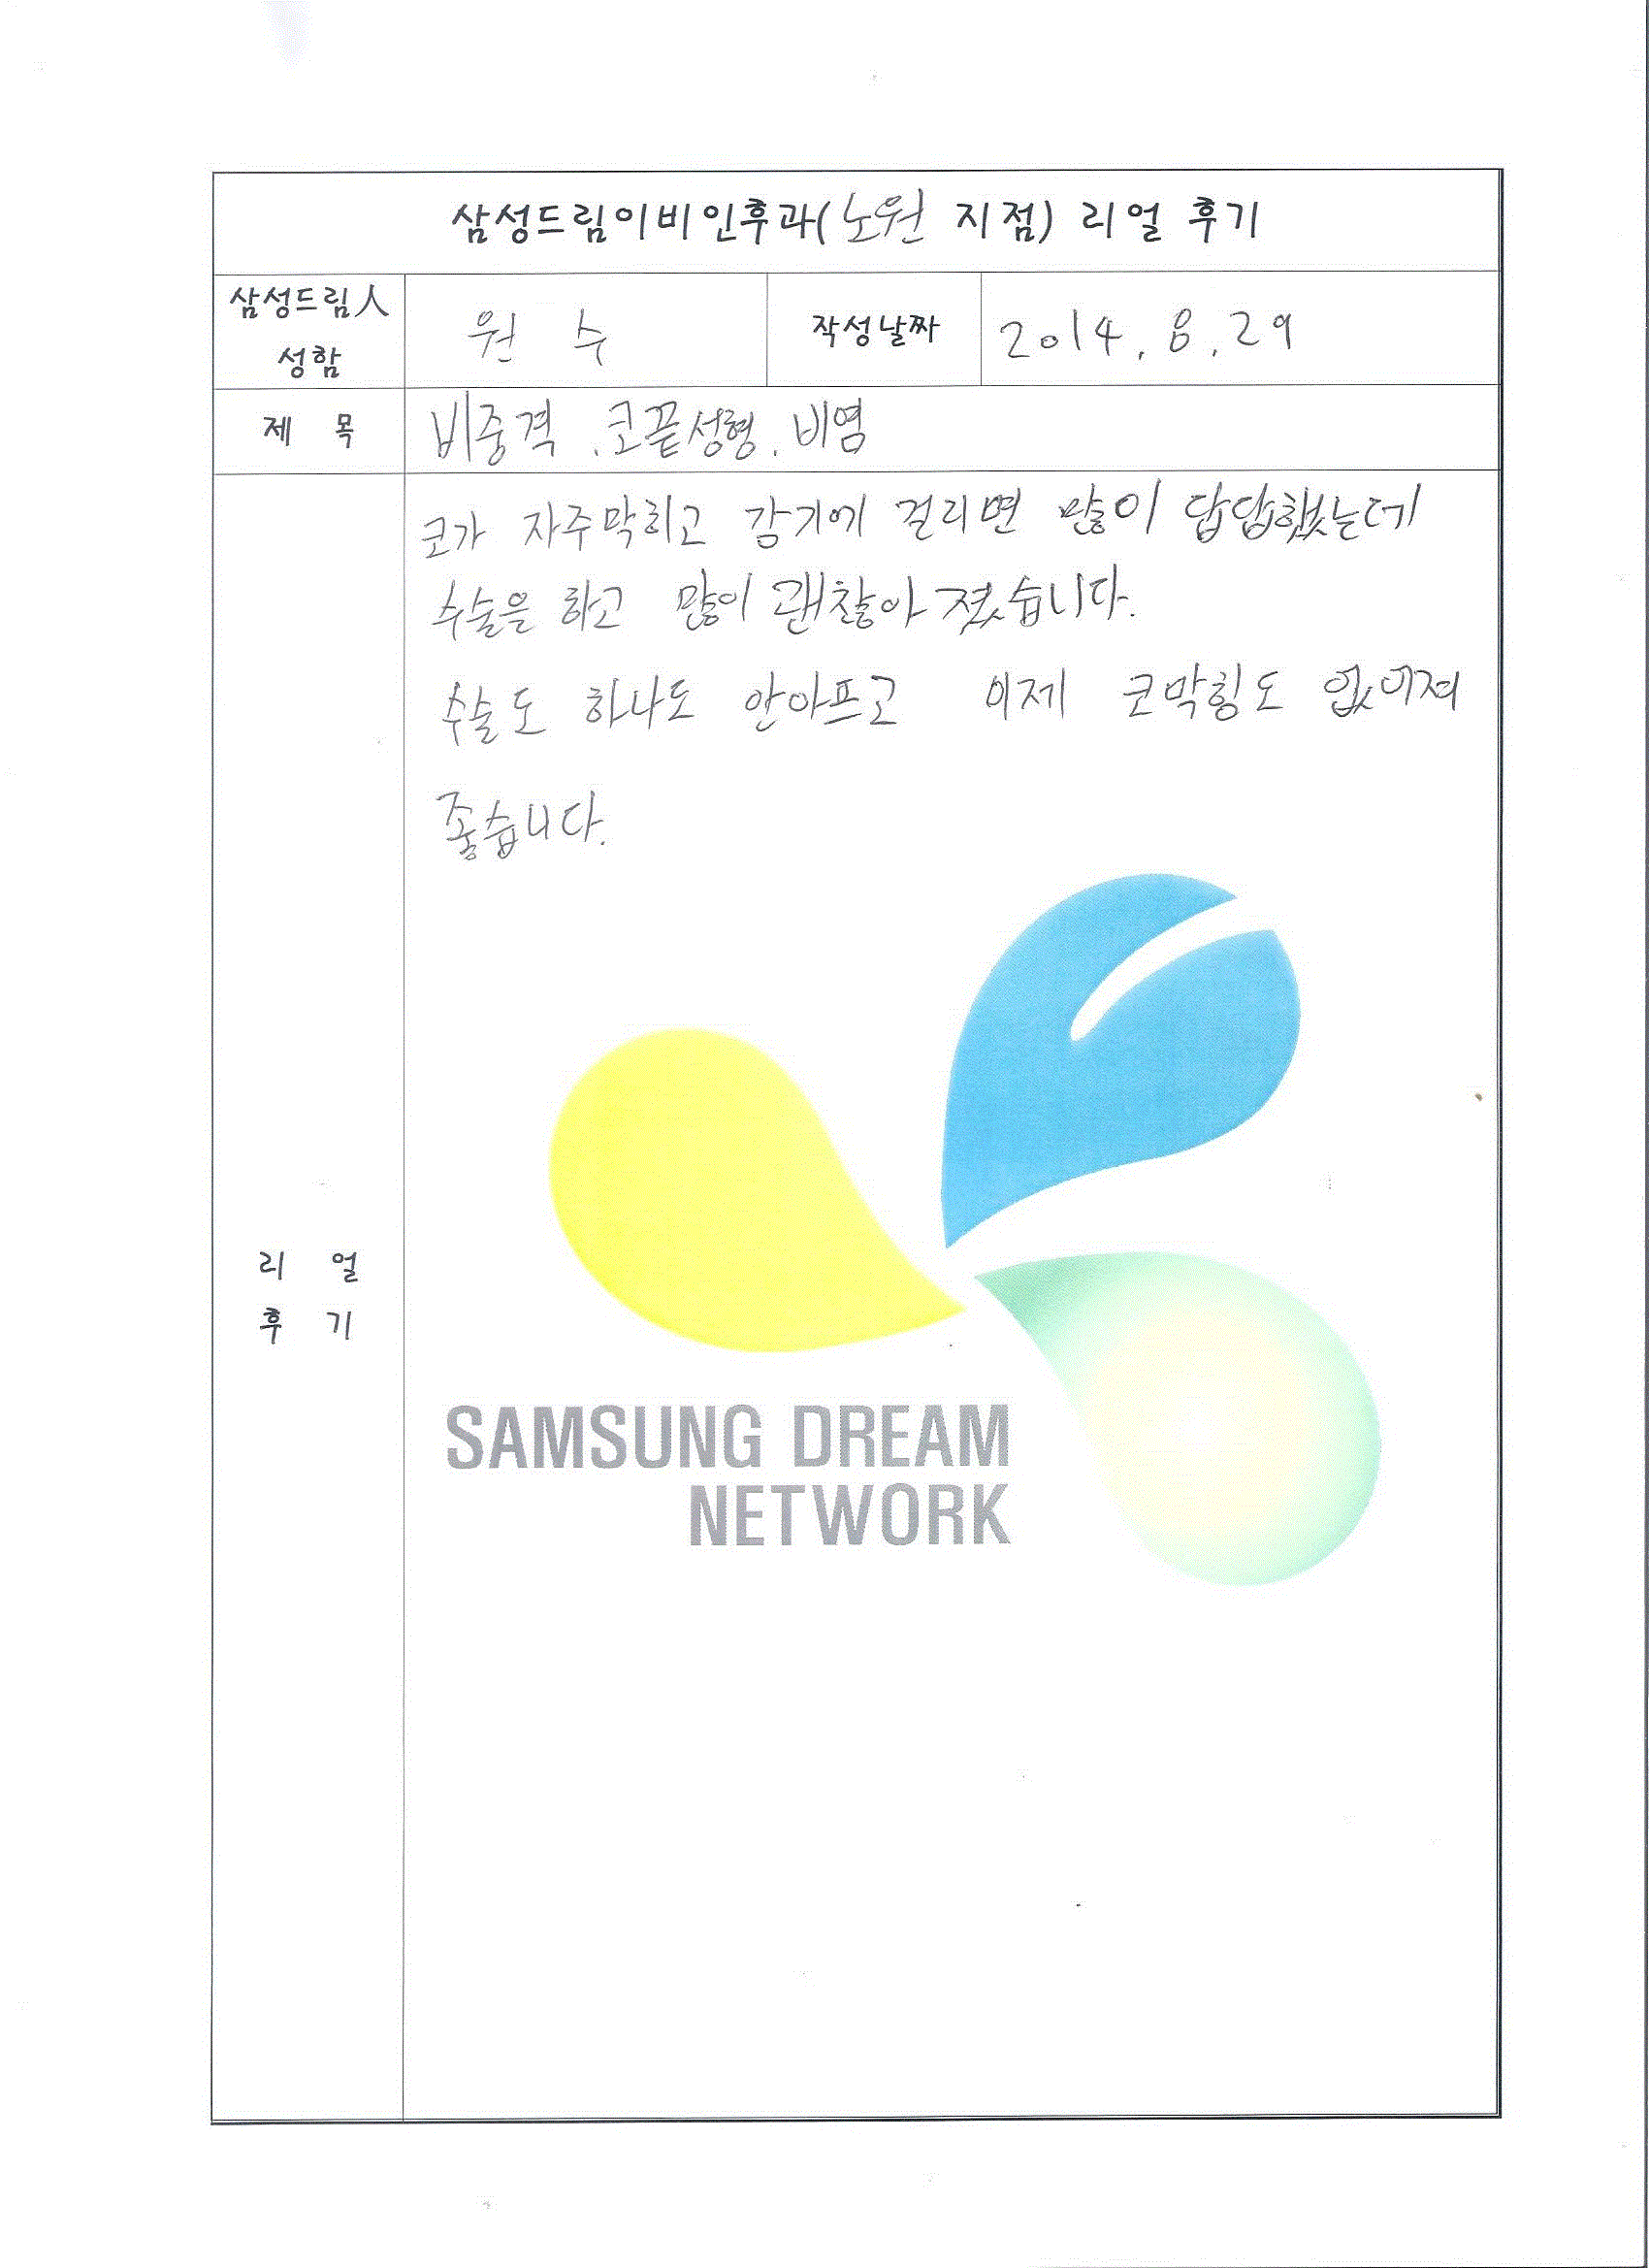 삼성드림이비인후과(노원 지점) 리얼 후기
삼성드림人
성함
원 수
작성날짜
2014. 8. 29
제 목
비중격 . 코끝성형. 비염
코가 자주막히고 감기에 걸리면 많이 답답했는데
수술을 하고 많이 괜찮아 졌습니다.
수술도 하나도 안아프고 이제 코막힘도 없어져
좋습니다.
리 얼
후 기
SAMSUNG DREAM
NETWORK